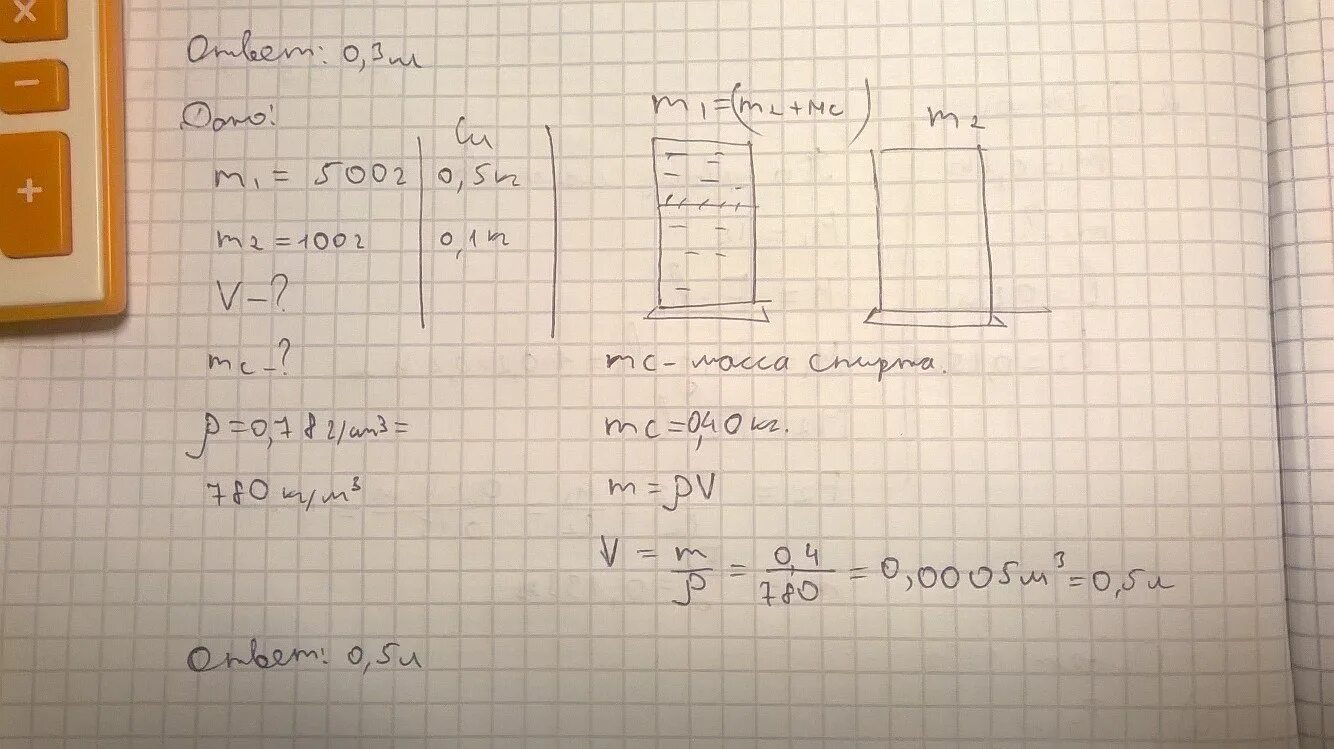 ×
−
+
Ответ: 0,3л
Дано:
Си
m₁ = 500г 0,5кг
m₂ = 100г 0,1кг
V – ?
mс – ?
ρ = 0,78 г/см³ =
780 кг/м³
m₁ = (m₂ + Mс)
m₂
mс – масса спирта.
mс = 0,40 кг.
m = ρV
V = m/ρ = 0,4/780 = 0,0005м³ = 0,5л
Ответ: 0,5л